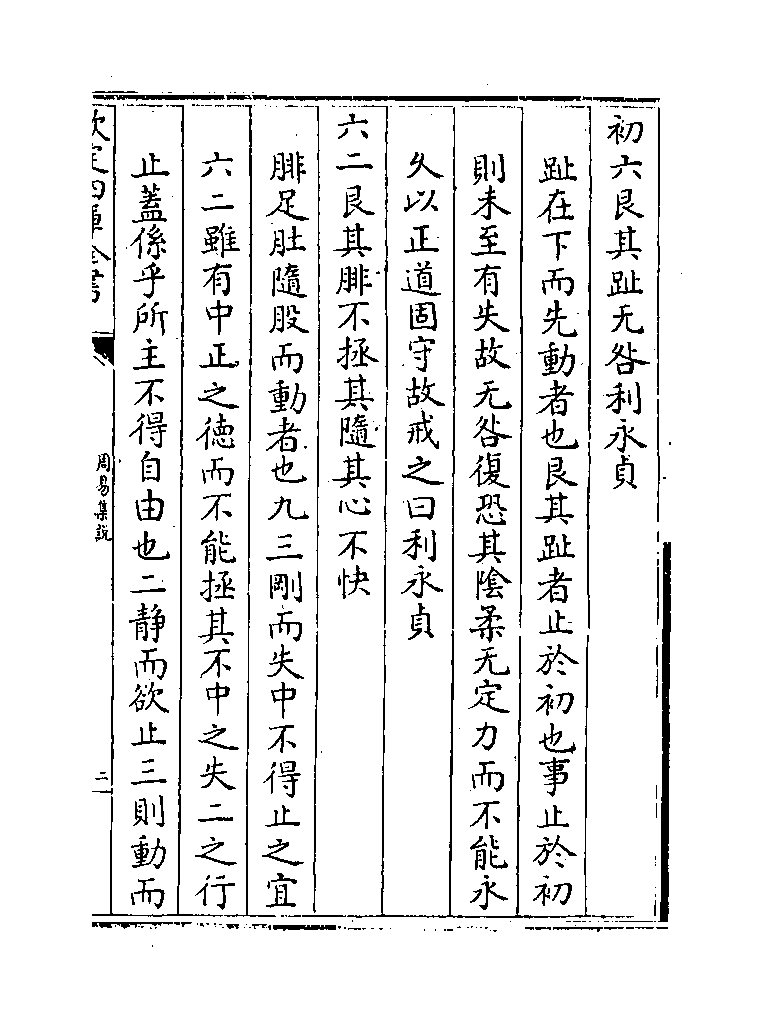 初六艮其趾无咎利永貞
趾在下而先動者也艮其趾者止於初也事止於初
則未至有失故无咎復恐其陰柔无定力而不能永
久以正道固守故戒之曰利永貞
六二艮其腓不拯其隨其心不快
腓足肚隨股而動者也九三剛而失中不得止之宜
六二雖有中正之徳而不能拯其不中之失二之行
止蓋係乎所主不得自由也二静而欲止三則動而
欽定四庫全書
周易集説
二